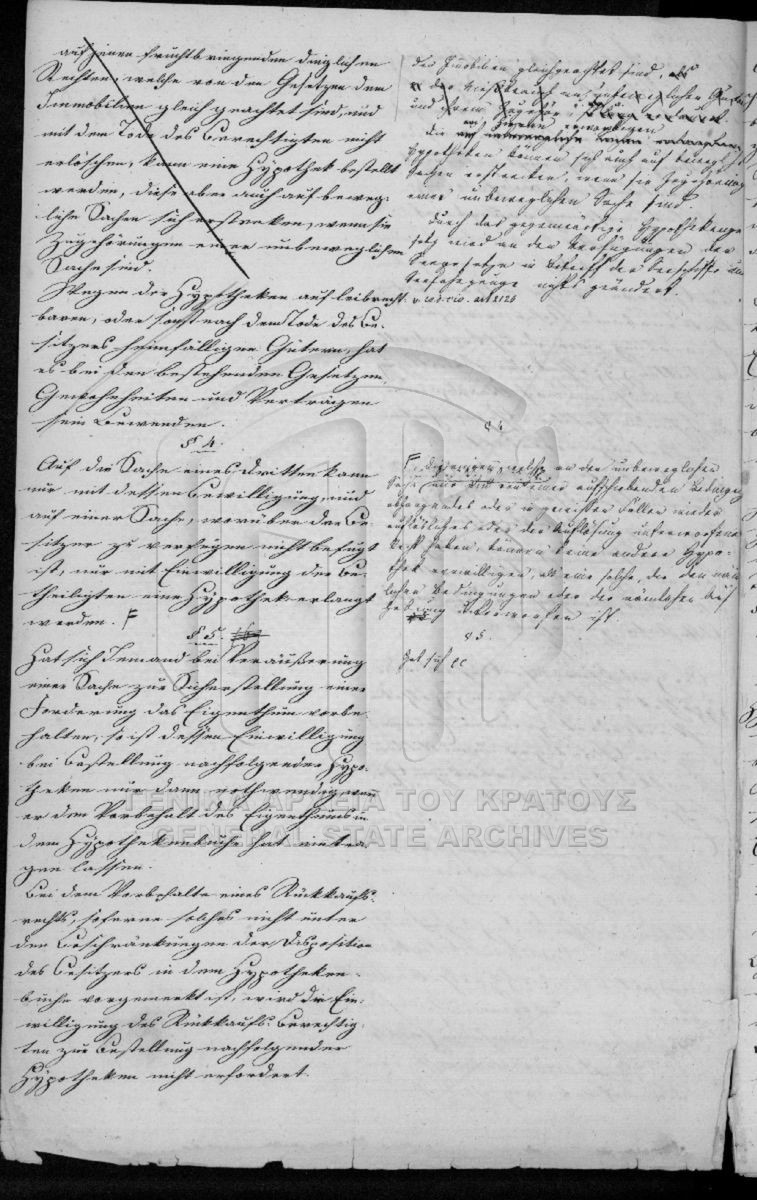 auf jenen fruchtbringenden dinglichen
Rechten, welche von den Gesetzen dem
Immobilien gleich geachtet sind, und
mit dem Tode des Berechtigten nicht
erlöschen, kann eine Hypothek bestellt
werden, diese aber auch auf beweg-
liche Sachen sich erstrecken, wenn sie
Zugehörungen einer unbeweglichen
Sache sind.
Wegen der Hypotheken auf leibrecht-
baren, oder sonst nach dem Tode des Be-
sitzers heimfälligen Gütern, hat
es bei den bestehenden Gesetzen,
Gewohnheiten und Verträgen
sein Bewenden.
§ 4.
Auf die Sache eines Dritten kann
nur mit dessen Bewilligung, und
auf einer Sache, worüber der Be-
sitzer zu verfügen nicht befugt
ist, nur mit Einwilligung der Be-
theiligten eine Hypothek erlangt
werden. F
§ 5.
Hat sich Jemand bei Veräußerung
einer Sache zur Sicherstellung einer
Forderung das Eigenthum vorbe-
halten, so ist dessen Einwilligung
bei Bestellung nachfolgender Hypo-
theken nur dann nothwendig, wenn
er den Vorbehalt des Eigenthums in
dem Hypothekenbuche hat eintra-
gen lassen.
Bei dem Vorbehalte eines Rückkaufs-
rechts, soferne solches nicht unter
den Beschränkungen der Disposition
des Besitzers in dem Hypotheken-
buche vorgemerkt ist, wird die Ein-
willigung des Rückkaufs-Berechtig-
ten zur Bestellung nachfolgender
Hypotheken nicht erfordert.
den Immobilien gleichgeachtet sind, als
der Nießbrauch an unbeweglichen
und ihrem
Die
Hypotheken können sich auch auf bewegl.
Sachen erstrecken, wenn sie Zugehörung
einer unbeweglichen Sache sind.
Durch das gegenwärtige Hypothekenge-
setz wird an den Verfügungen der
Seegesetze in Betreff der Seeschiffe und
Seefahrzeuge nichts geändert.
v. cod. civ. art 2120
§ 4
F Diejenigen, welche an der unbeweglichen
Sache nur ein von einer aufschiebenden Bedingung
abhängendes oder in gewissen Fällen wieder
aufzulösendes oder der Auflösung unterworfenes
Recht haben, können keine andere Hypo-
thek bewilligen, als eine solche, die den näm-
lichen Bedingungen oder der nämlichen Auf-
hebung unterworfen ist.
§ 5.
Hat sich etc
ΓΕΝΙΚΑ ΑΡΧΕΙΑ ΤΟΥ ΚΡΑΤΟΥΣ
GENERAL STATE ARCHIVES